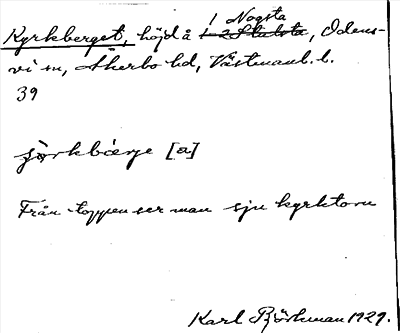 1 Nogsta
Kyrkberget, höjd å 1-2 Stalsta, Odens-
vi sn, Åkerbo hd, Västmanl. l.
39
jørkbærje [a]
Från toppen ser man sju kyrktorn
Karl Björkman 1929.